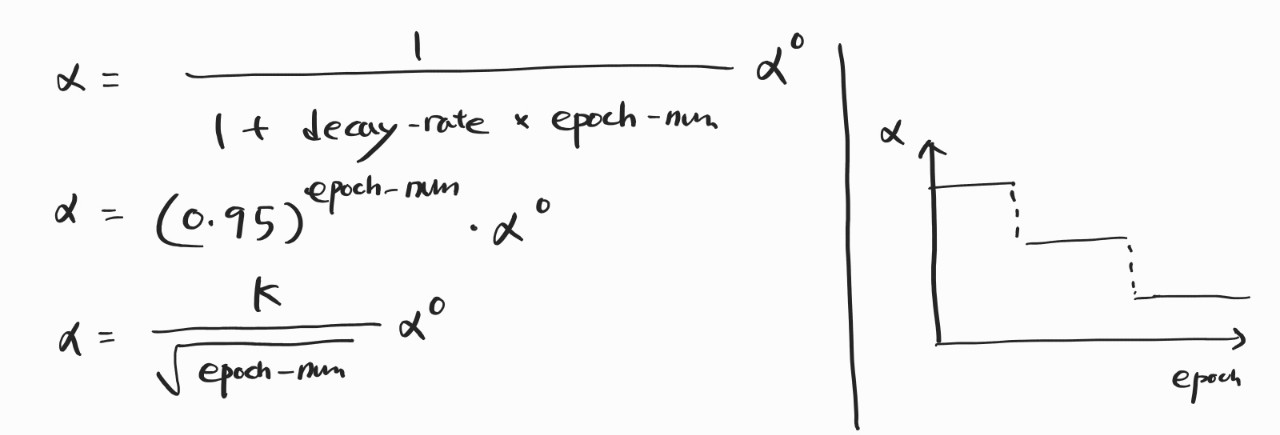 α = 1 / (1 + decay-rate × epoch-num) α⁰
α = (0.95)^epoch-num · α⁰
α = k / √epoch-num α⁰
α
epoch